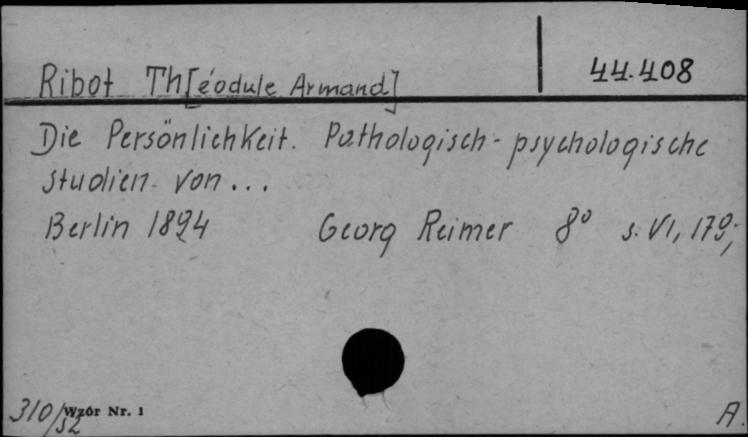 44.408
Ribot Th[éodule Armand]
Die Persönlichkeit. Pathologisch-psychologische
studien von...
Berlin 1894 Georg Reimer 8° s. VI, 179;
310/52 Wzór Nr. 1 A.